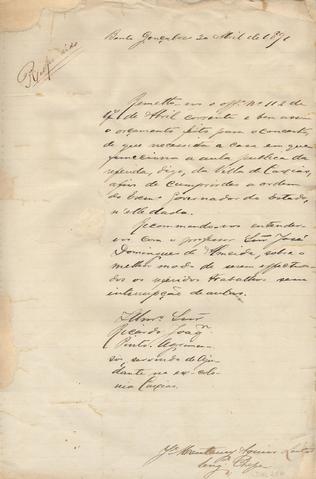 Respondido
Bento Gonçalves 20 Abril de 1891
Remetto-vos o off. nº 112 de
4 de Abril corrente e bem assim
o orçamento feito para o concerto
de que necessita a casa em que
funcciona a aula publica da
referida, digo, da villa de Caxias,
afim de cumprirdes a ordem
do Exmo Governador do Estado,
n'elle dada.
Recommendo-vos entender-
vos com o professor Snr. José
Domingues de Almeida, sobre o
melhor modo de serem effectua-
dos os referidos trabalhos sem
interrupção de aulas.
Illmo. Snr.
Ricardo Joaqm
Pinto. Agrimen-
sor, servindo de Aju-
dante na ex-colo-
nia Caxias.
Engº Chefe